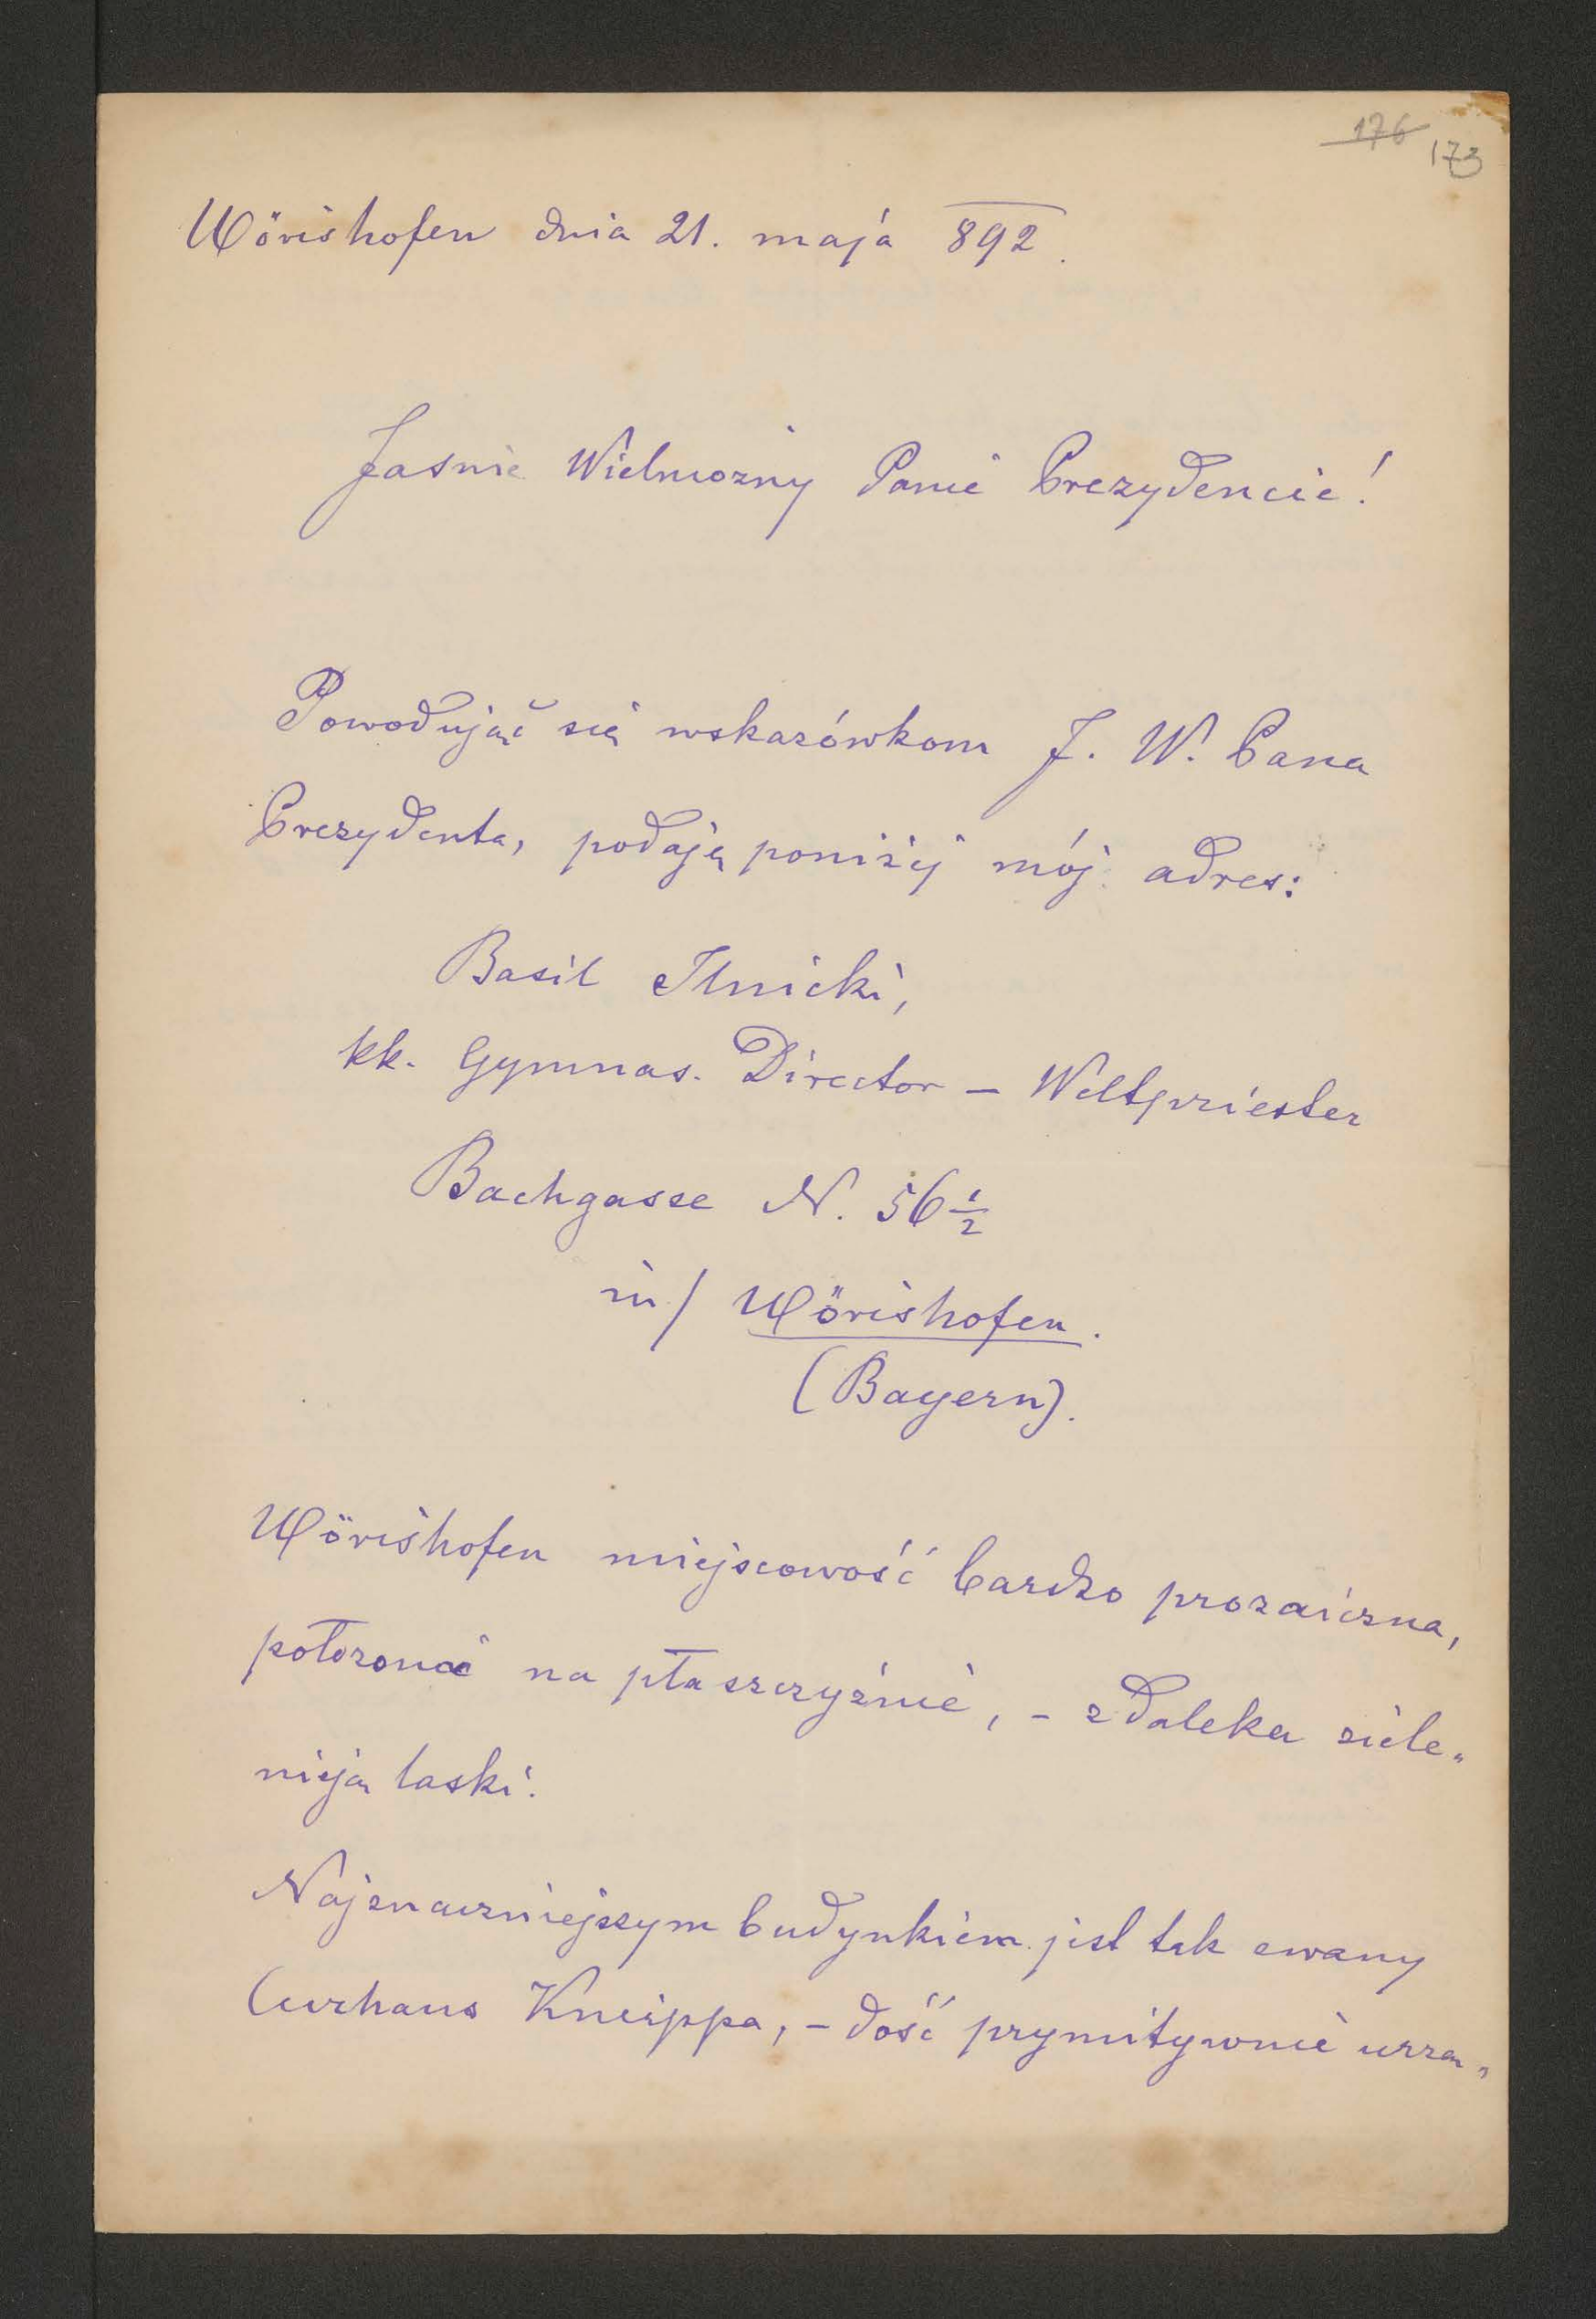 176 173
Wörishofen dnia 21. maja 892.
Jasnie Wielmozny Panie Prezydencie!
Powodując się wskazówkom J. W. Pana
Prezydenta, podaję poniżej mój adres:
Basil Ilnicki,
kk. Gymnas. Director – Weltpriester
Bachgasse N. 56 1/2
in/ Wörishofen.
(Bayern).
Wörishofen miejscowość bardzo prozaiczna,
położona na płaszczyźnie, – zdaleka ziele„
nieją laski.
Najznaczniejszym budynkiem jest tak zwany
Curhaus Kneippa, – dość prymitywnie urzą„